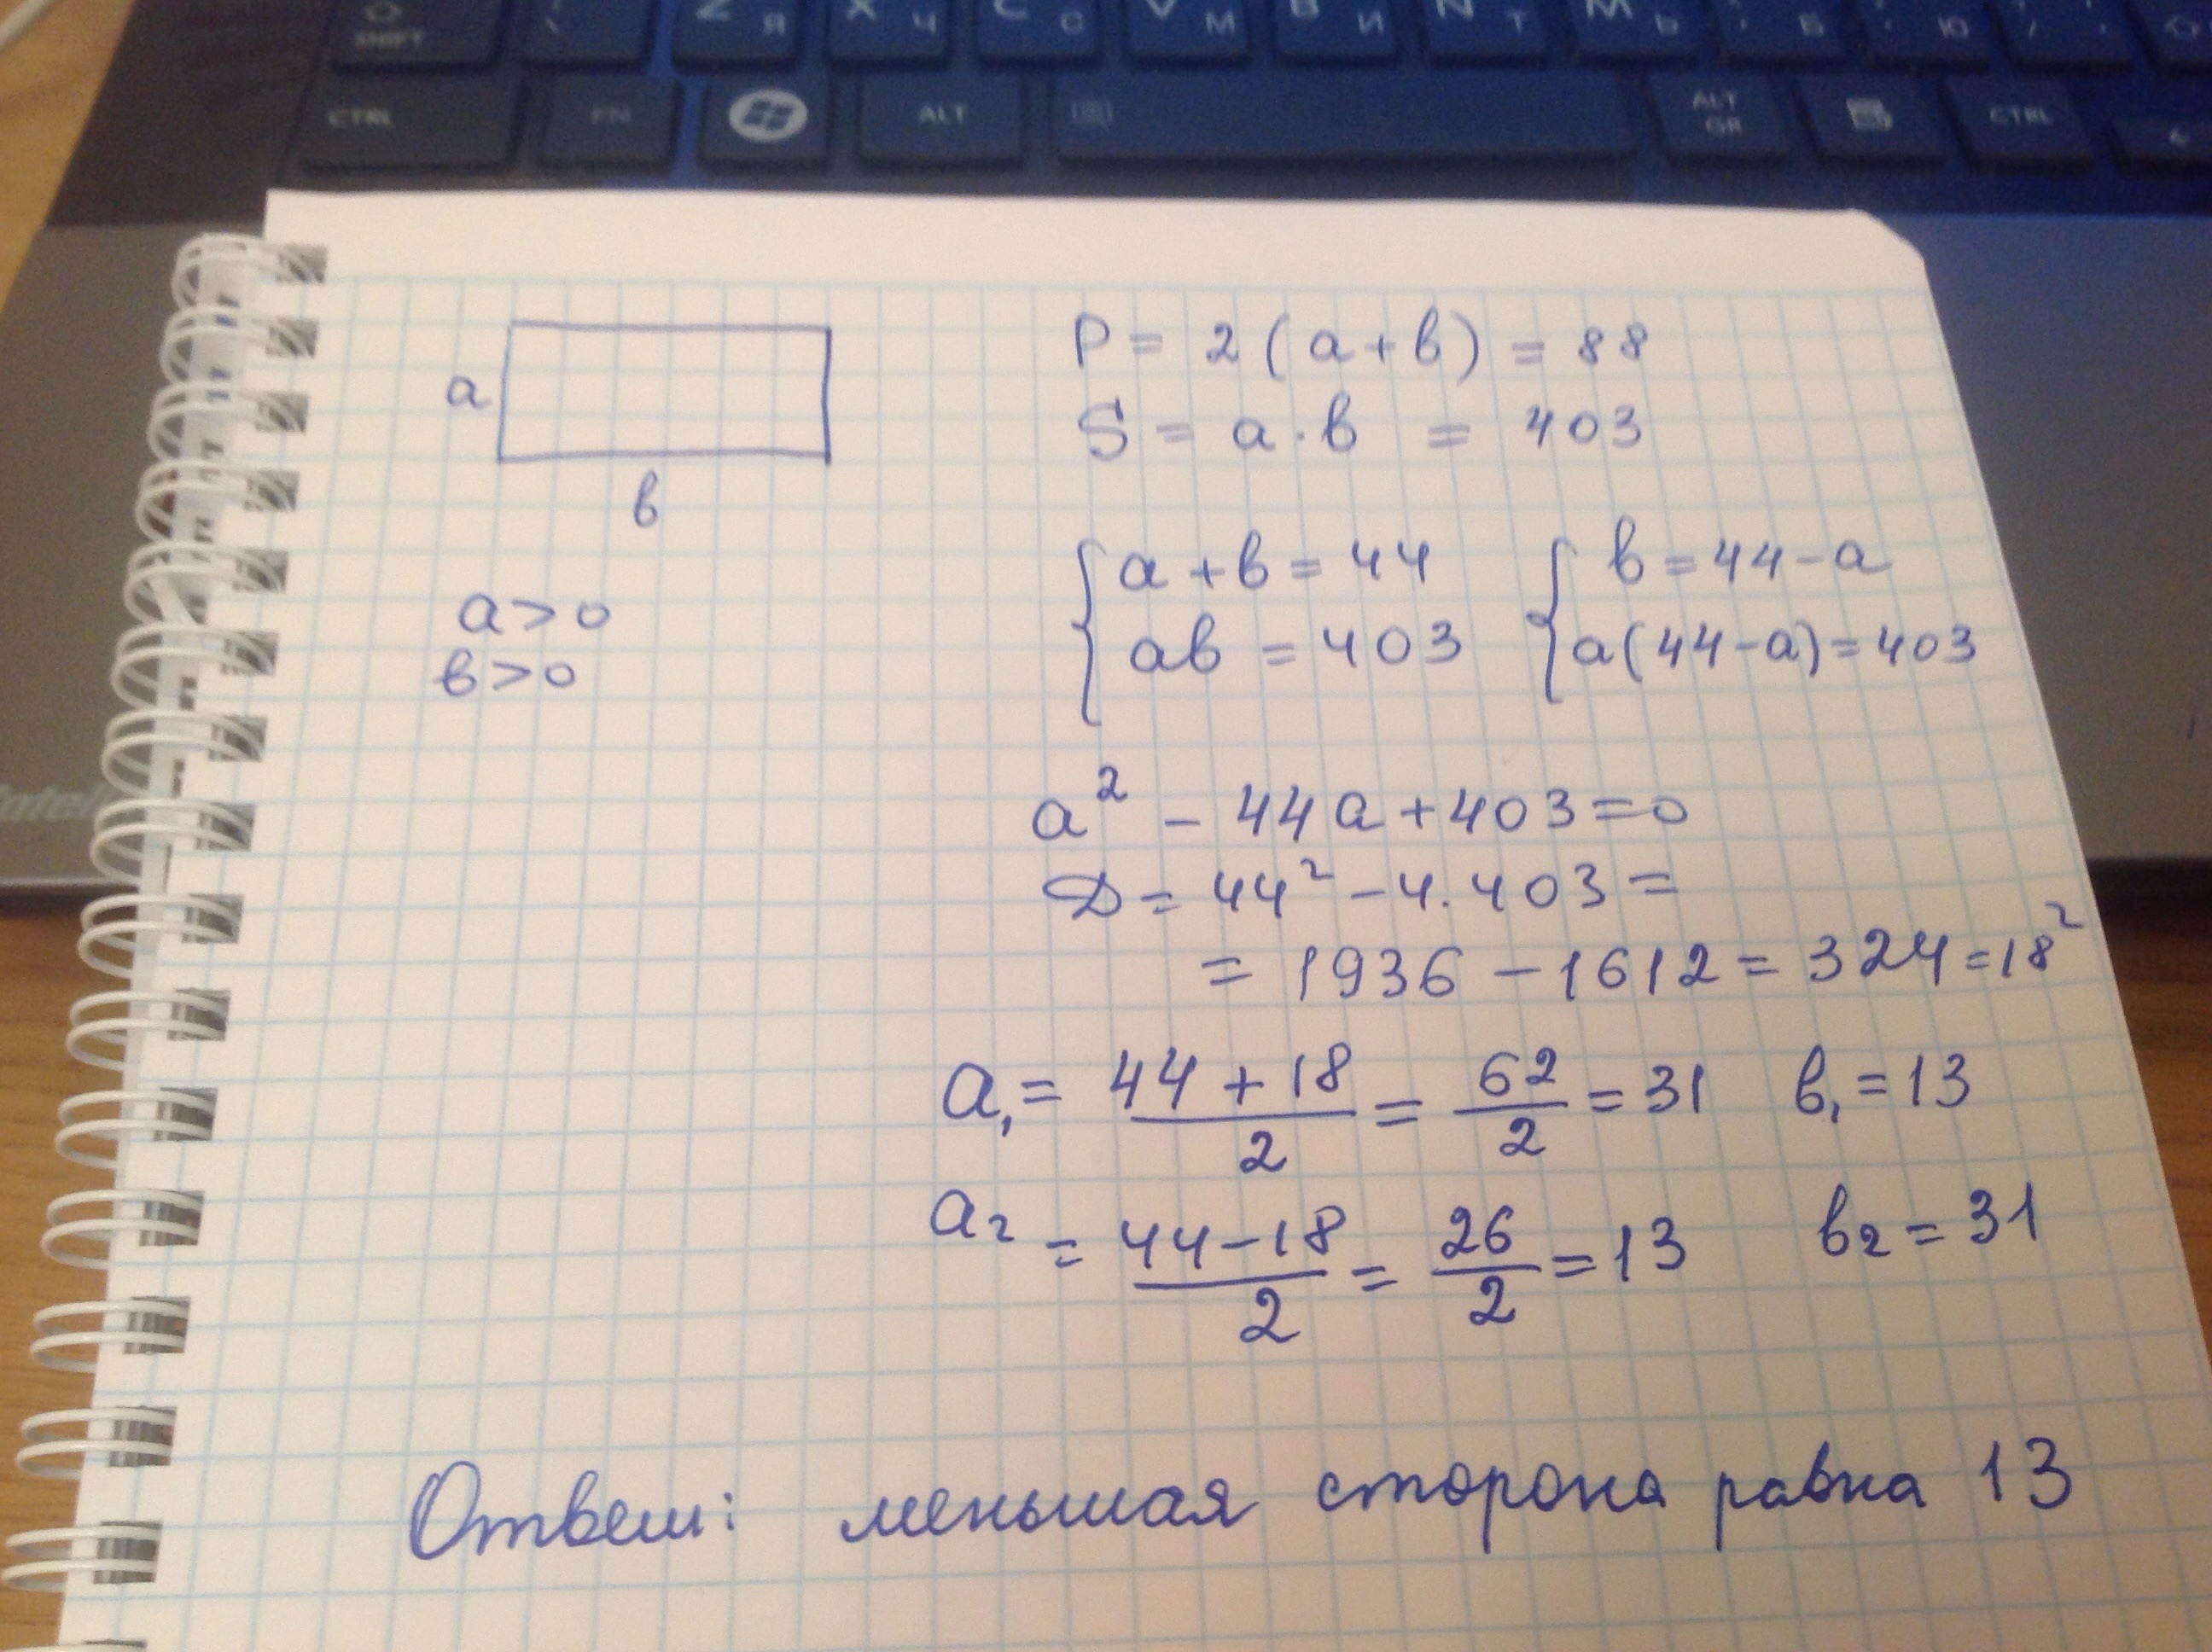 SHIFT Z Я X Ч C С V М B И N Т M Ь Б Ю
CTRL FN ALT ALT GR CTRL
a
в
a > 0
в > 0
P = 2(a + в) = 88
S = a · в = 403
{ a + в = 44 { в = 44 - a
aв = 403 a(44 - a) = 403
a² - 44a + 403 = 0
D = 44² - 4 · 403 =
= 1936 - 1612 = 324 = 18²
a₁ = 44 + 18 / 2 = 62 / 2 = 31 в₁ = 13
a₂ = 44 - 18 / 2 = 26 / 2 = 13 в₂ = 31
Ответ: меньшая сторона равна 13
intel